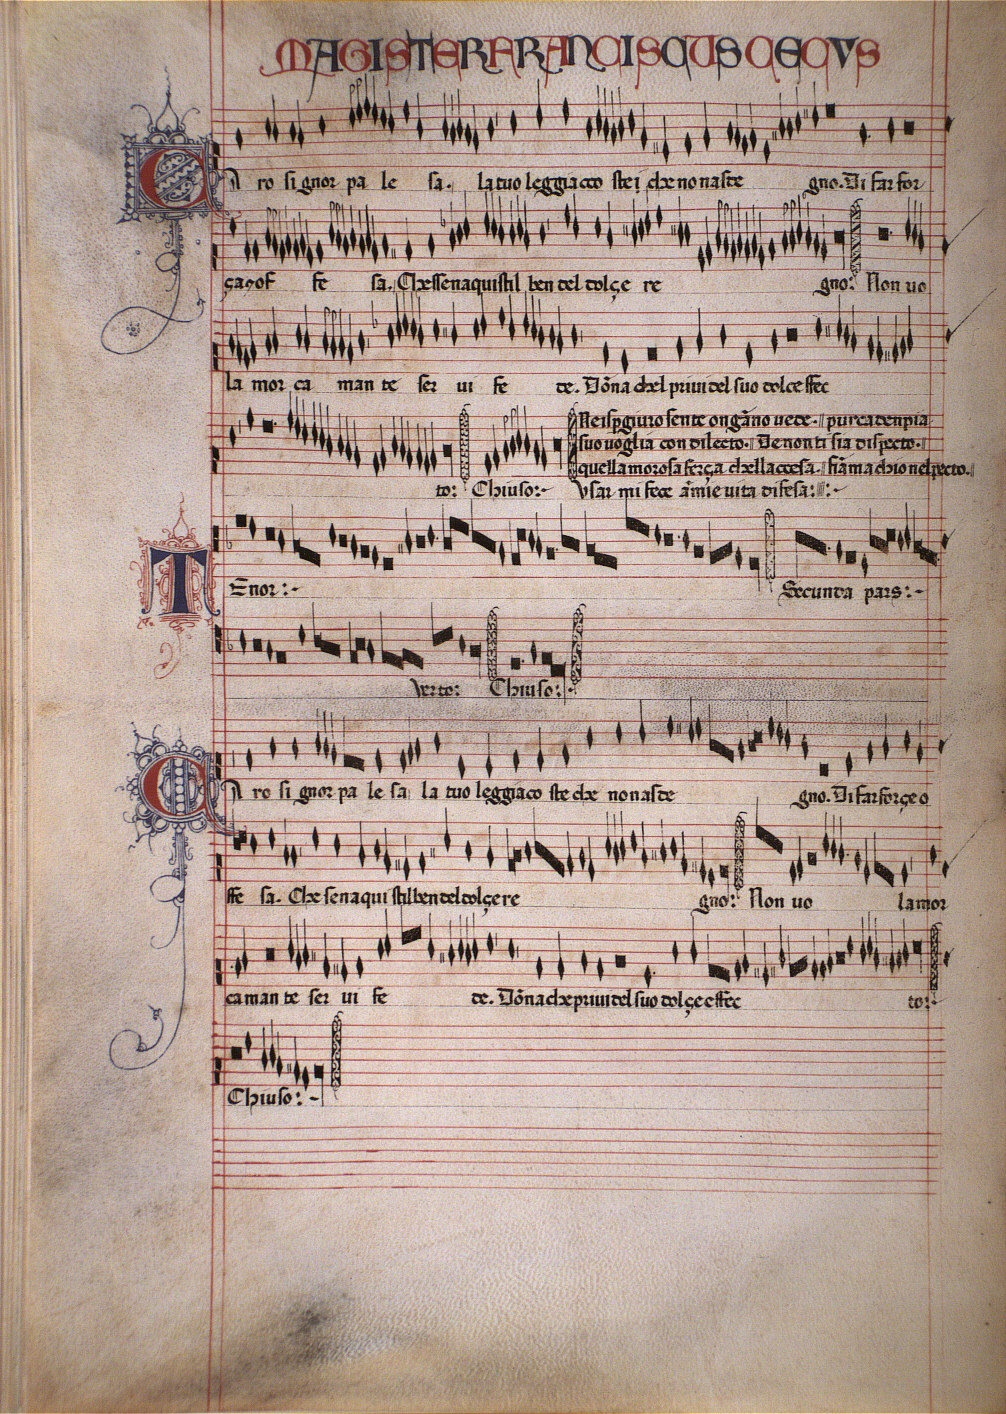 MAGISTER FRANCISCUS CECVS
CA ro si gnor pa le sa. la tuo leggiacco ste i che non aste gno. Di far for
ça ꝯof fe sa. Chessenaquistil ben del dolçe re gno: Non uo
la mor ca man te ser ui fe de. Dōna chel priui del suo dolce effec
Ne ispgiuro sente ongāno uede. pur ca denpia
suo uoglia con dilecto. De non ti sia dispecto.
quella morosa força chella ccesa. fiāma chio nel pecto.
to: Chiuso: Vsar mi fece āmie uita difesa:
TEnor: Secunda pars:
Verto: Chiuso:
CA ro si gnor pa le sa la tuo leggiaco ste che non aste gno. Di far forçe o
ffe sa. Che senaqui stil ben del dolçe re gno: Non uo la mor
ca man te ser ui fe de. Dōna che priui del suo dolçe effec to:
Chiuso: